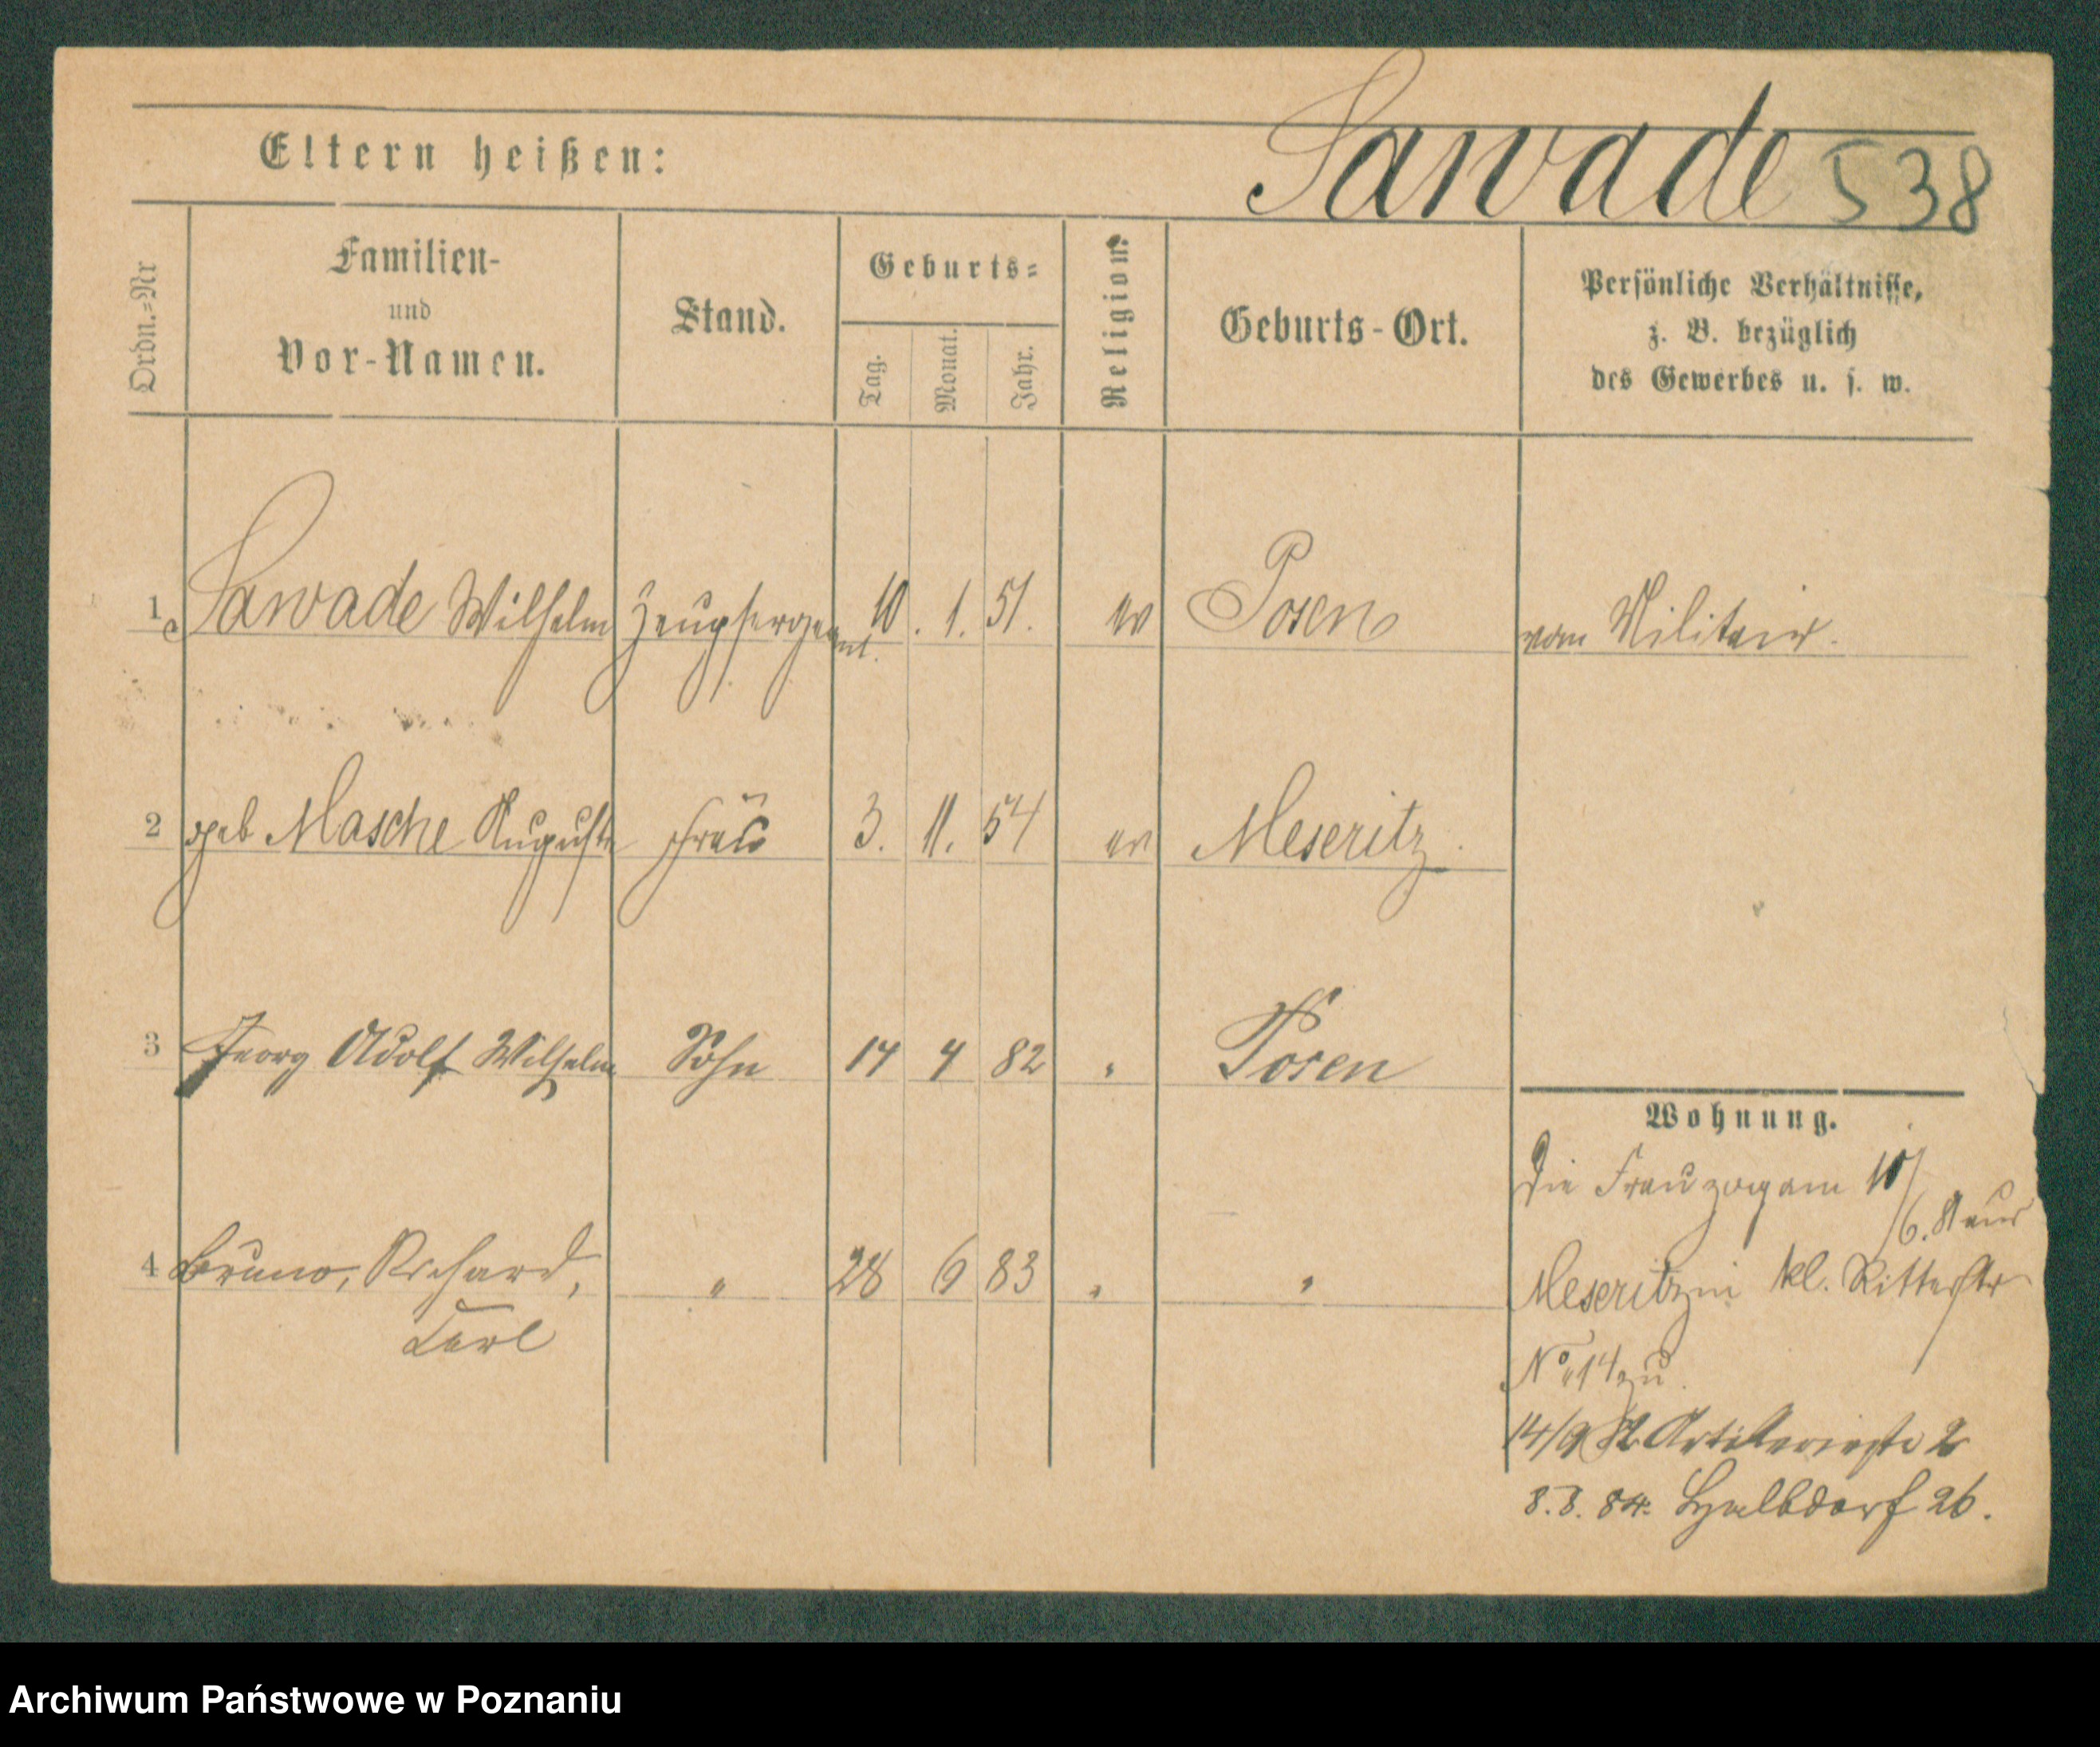 Eltern heißen:
Sawade 538
Ordn.=Nr
Familien-
und
Vor-Namen.
Stand.
Geburts=
Tag.
Monat.
Jahr.
Religion.
Geburts-Ort.
Persönliche Verhältnisse,
z. B. bezüglich
des Gewerbes u. s. w.
1 Sawade Wilhelm Zeugsergeant. 10. 1. 51. ev Posen vom Militair.
2 geb Masche Auguste Frau 3. 11. 54 ev Meseritz.
3 Georg Adolf Wilhelm Sohn 17 4 82 " Posen
4 Bruno, Richard, " 28 6 83 " "
Carl
Wohnung.
Die Frau zog am 10/
6. 81 aus
Meseritz in kl. Ritterstr
No 14 zu.
14/9 82 Artilleriestr 2
8. 3. 84. Halbdorf 26.
Archiwum Państwowe w Poznaniu